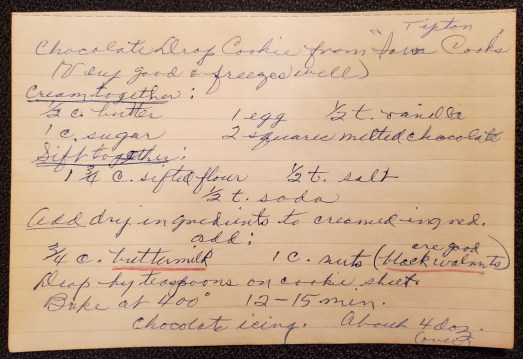 Tipton
Chocolate Drop Cookie from "Iowa Cooks"
(Very good & freezes well)
Cream together:
½ c. butter 1 egg ½ t. vanilla
1 c. sugar 2 squares melted chocolate
Sift together:
1 ¾ c. sifted flour ½ t. salt
½ t. soda
Add dry ingredients to creamed ingred.
add:
¾ c. buttermilk 1 c. nuts (black walnuts are good)
Drop by teaspoons on cookie sheet.
Bake at 400° 12-15 min.
Chocolate icing. About 4 doz.
(over)